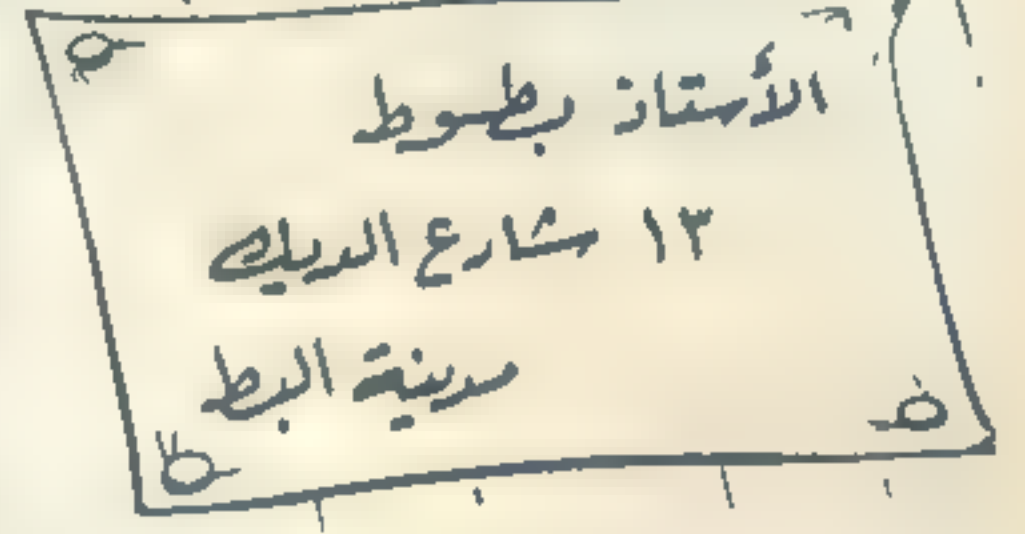 الأستاذ بطوط
١٣ شارع الديك
مدينة البط